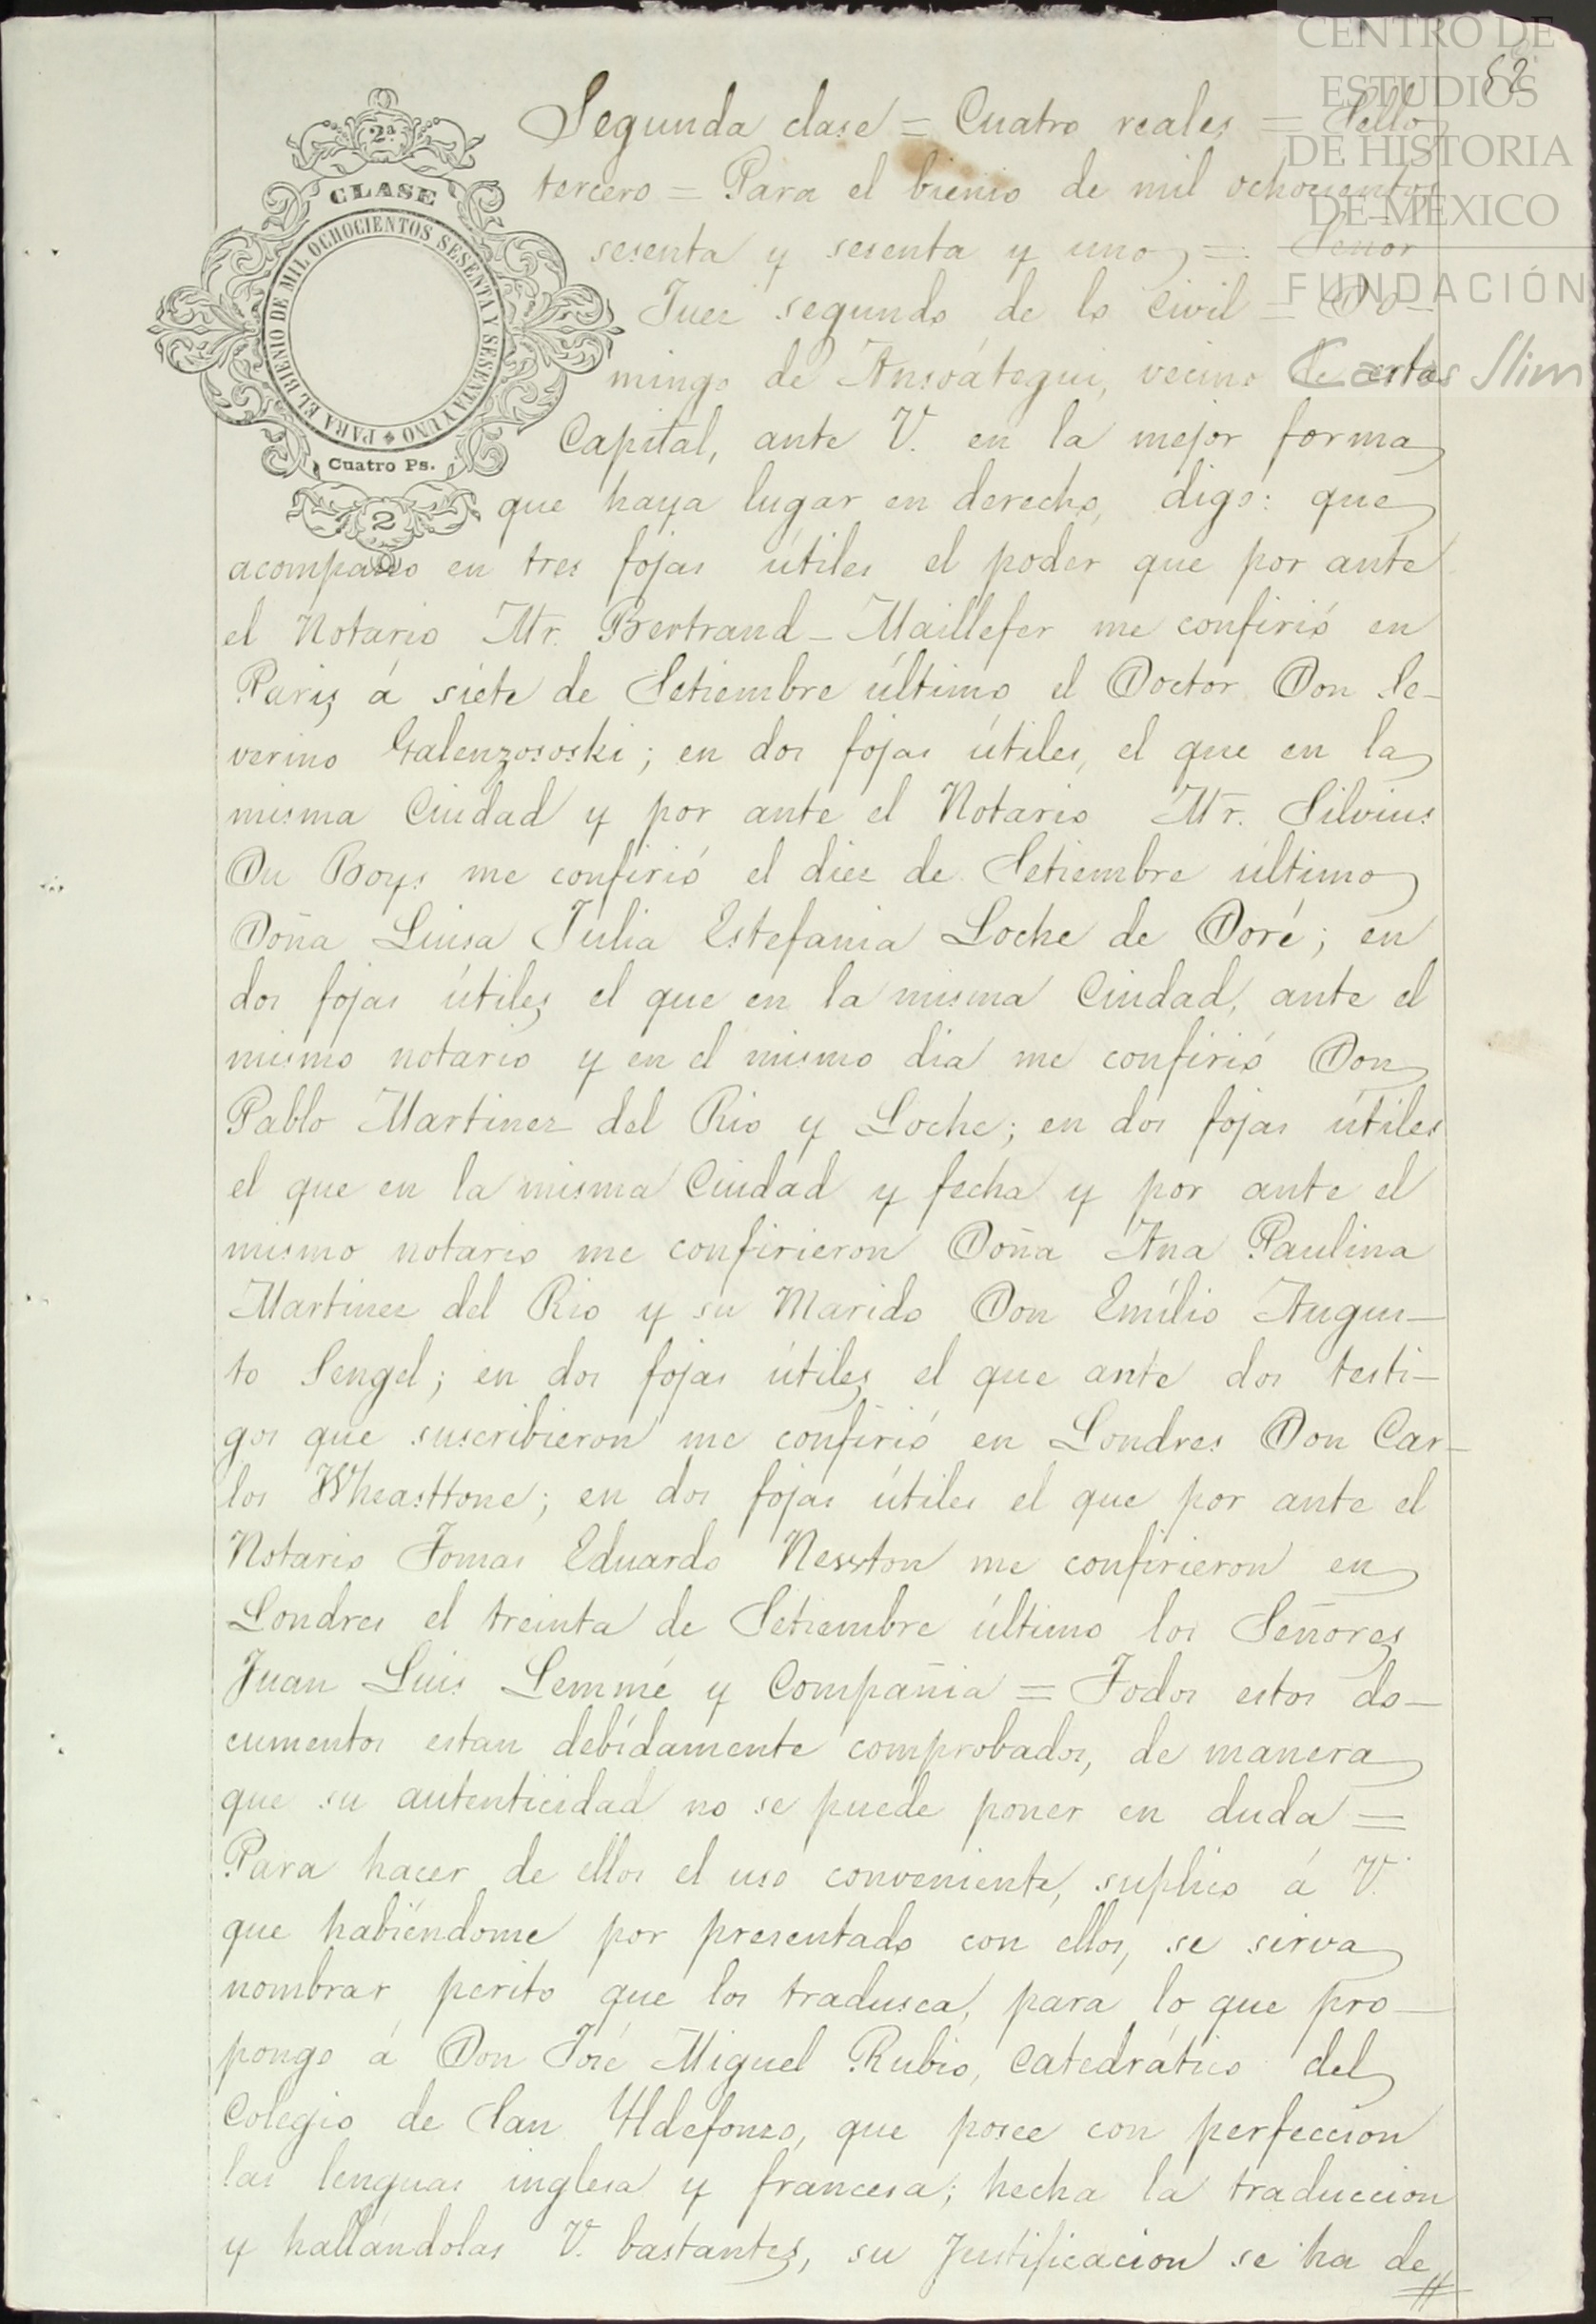 CENTRO DE
ESTUDIOS
DE HISTORIA
DE MEXICO
FUNDACIÓN
Carlos Slim
52
2a
CLASE
PARA EL BIENIO DE MIL OCHOCIENTOS SESENTA Y SESENTA Y UNO
Cuatro Ps.
2
Segunda clase = Cuatro reales = Sello
tercero = Para el bienio de mil ochocientos
sesenta y sesenta y uno =. Señor
Juez segundo de lo Civil = Do-
mingo de Ansoátegui, vecino de esta
Capital, ante V. en la mejor forma
que haya lugar en derecho, digo: que
acompaño en tres fojas útiles el poder que por ante
el Notario Mr. Bertrand-Maillefer me confirió en
Paris á siete de Setiembre último el Doctor Don Se-
verino Galenzososki; en dos fojas útiles, el que en la
misma Ciudad y por ante el Notario Mr. Silvius
Du Boys me confirió el diez de Setiembre último
Doña Luisa Julia Estefania Loche de Doré; en
dos fojas útiles el que en la misma Ciudad, ante el
mismo notario y en el mismo dia me confirió Don
Pablo Martinez del Rio y Loche; en dos fojas útiles
el que en la misma Ciudad y fecha y por ante el
mismo notario me confirieron Doña Ana Paulina
Martinez del Rio y su Marido Don Emílio Augus-
to Sengel; en dos fojas útiles el que ante dos testi-
gos que suscribieron me confirió en Londres Don Car-
los Wheasttone; en dos fojas útiles el que por ante el
Notario Tomas Eduardo Newton me confirieron en
Londres el treinta de Setiembre último los Señores
Juan Luis Lemmé y Compañia = Todos estos do-
cumentos estan debídamente comprobados, de manera
que su autenticidad no se puede poner en duda =
Para hacer de ellos el uso conveniente, suplico á V.
que habiéndome por presentado con ellos, se sirva
nombrar perito que los tradusca, para lo que pro-
pongo á Don José Miguel Rubio, Catedrático del
Colegio de San Yldefonso, que posee con perfeccion
las lenguas inglesa y francesa; hecha la traduccion
y hallándolas V. bastantes, su Justificacion se ha de